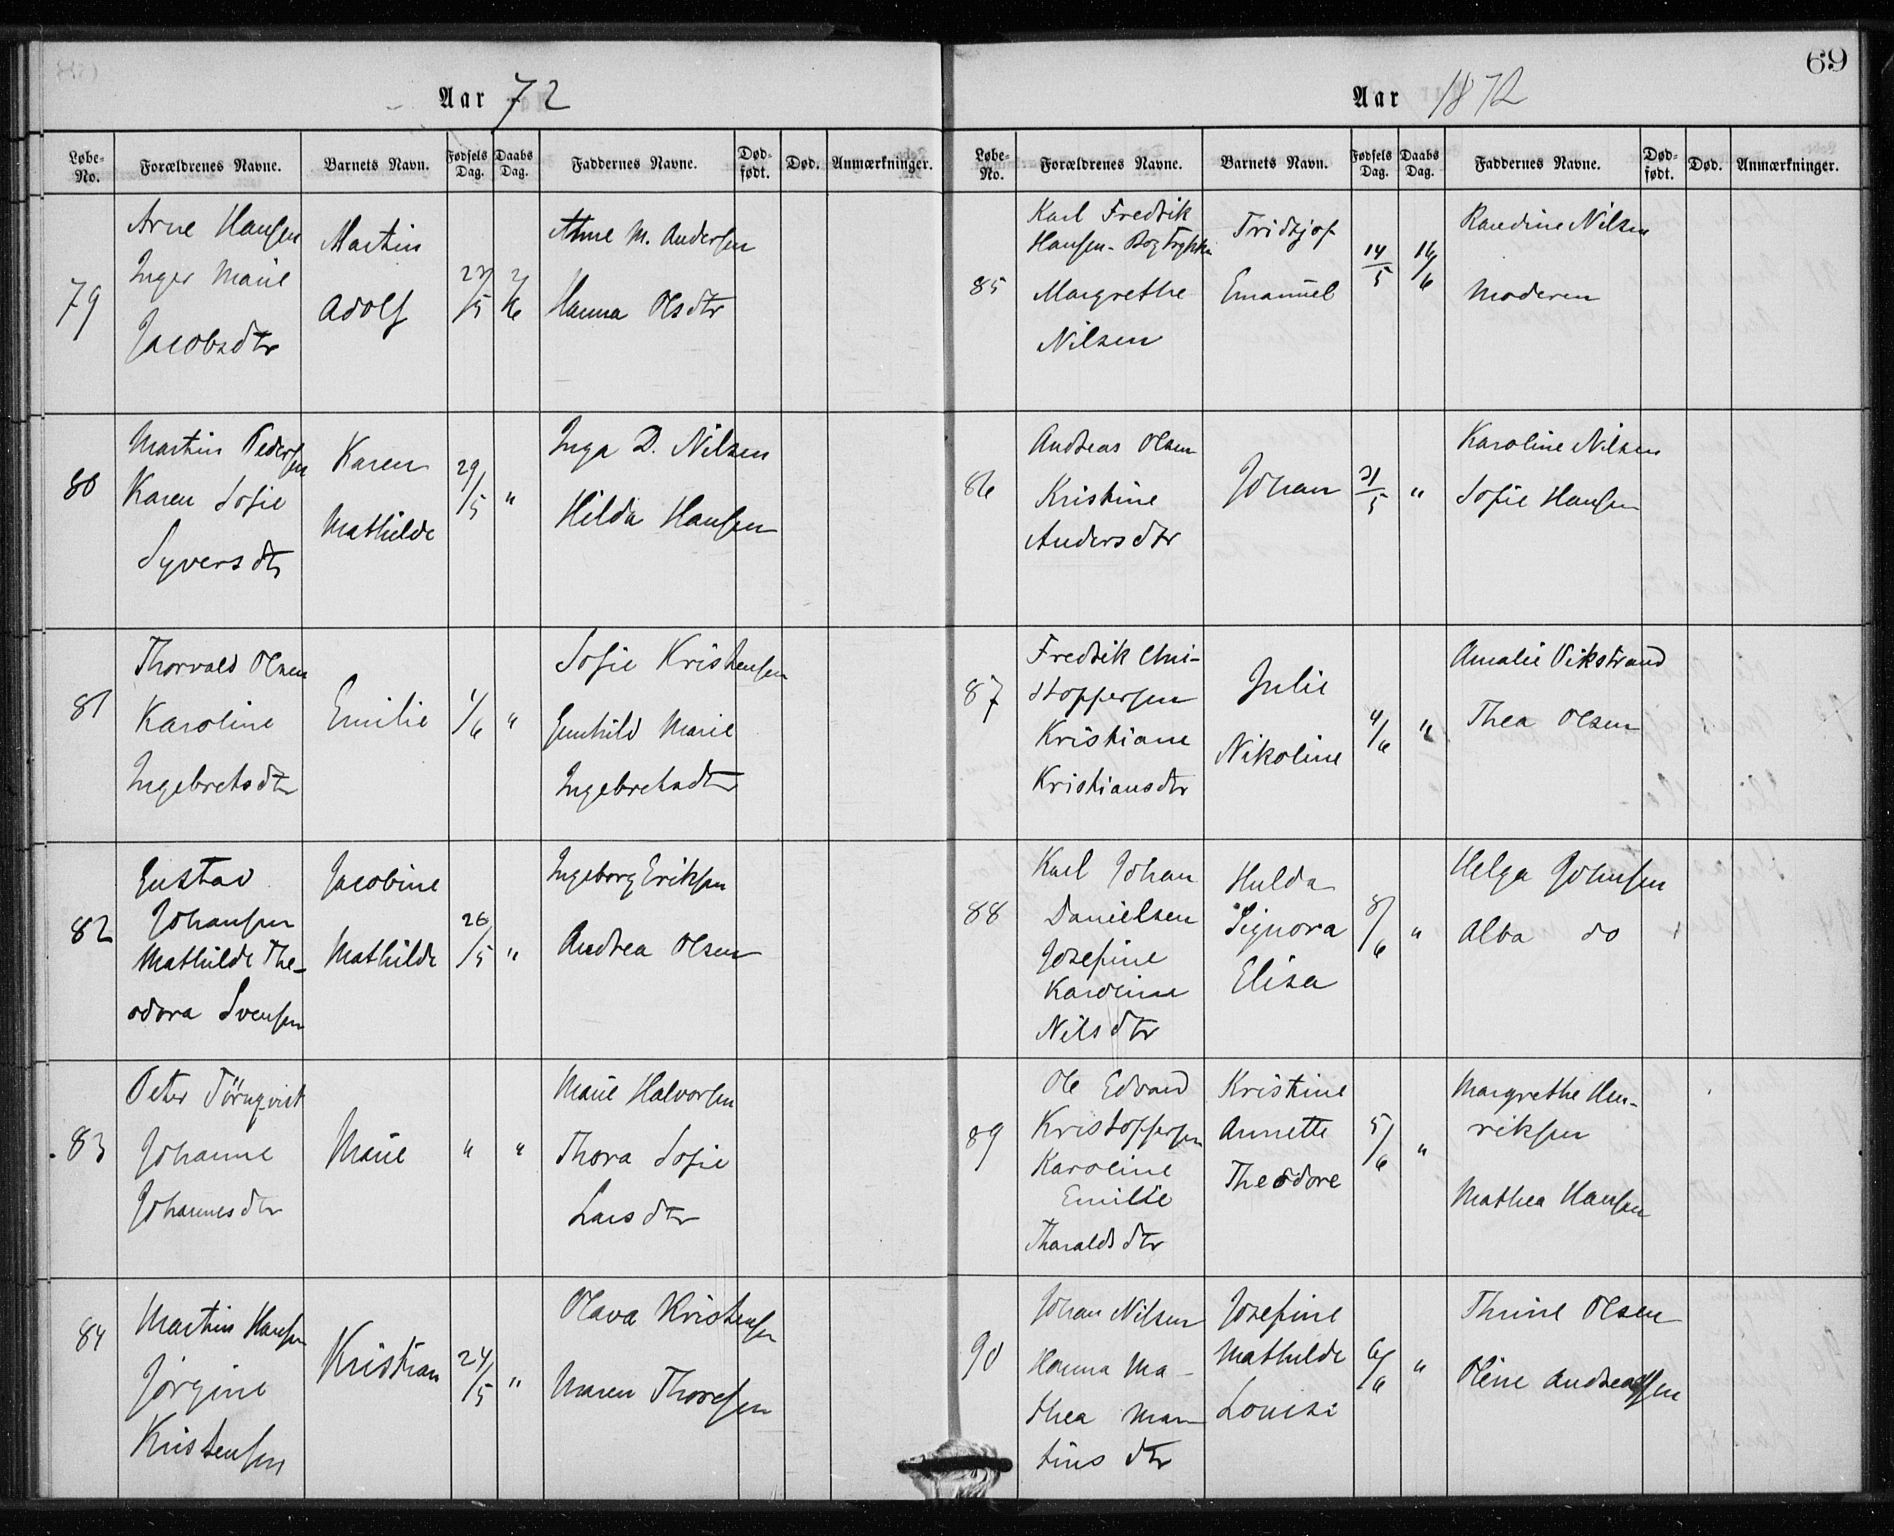 Aar 72
Løbe-No. Forældrenes Navne. Barnets Navn. Fødsels Dag. Daabs Dag. Faddernes Navne. Død-født. Død. Anmærkninger.
79
Arne Hansen
Inger Marie
Jacobsdtr
Martin
Adolf
2/6
M. Andersen
Hanna Olsdtr
80
Martin Pedersen
Karen Sofie
Syversdtr
Karen
Mathilde
29/5
"
Inga D. Nilsen
Hilda Hansen
81
Thorvald Olsen
Karoline
Ingebretsdtr
Emilie
1/6
"
Sofie Kristensen
Gunhild Marie
Ingebretsdtr
82
Gustav
Johansen
Mathilde The-
odora Svensen
Jacobine
Mathilde
26/5
"
Ingeborg Eriksen
Andrea Olsen
83
Peter Törnqvist
Johanne
Johannesdtr
Marie
"
"
Marie Halvorsen
Thora Sofie
Larsdtr
84
Martin Hansen
Jørgine
Kristensen
Kristian
24/5
"
Olava Kristensen
Maren Thoresen
69
Aar 1872
Løbe-No. Forældrenes Navne. Barnets Navn. Fødsels Dag. Daabs Dag. Faddernes Navne. Død-født. Død. Anmærkninger.
85
Karl Fredrik
Hansen-
Margrethe
Nilsen
Fridtjof
Emanuel
14/5
16/6
Randine Nilsen
Moderen
86
Andreas Olsen
Kristine
Andersdtr
Johan
31/5
"
Karoline Nilsen
Sofie Hansen
87
Fredrik Chri-
stoffersen
Kristiane
Kristiansdtr
Julie
Nikoline
4/6
"
Amalie Vikstrand
Thea Olsen
88
Karl Johan
Danielsen
Josefine
Karoline
Nilsdtr
Hulda
Signora
Elisa
8/6
"
Helga Johnsen
Alba do
89
Ole Edvard
Kristoffersen
Karoline
Emilie
Tharaldsdtr
Kristine
Annette
Theodore
5/6
"
Margrethe Hen-
riksen
Mathea Hansen
90
Johan Nilsen
Hanna Ma-
thea Mar
tins dtr
Josefine
Mathilde
Louise
6/6
"
Thrine Olsen
Oline Andreassen